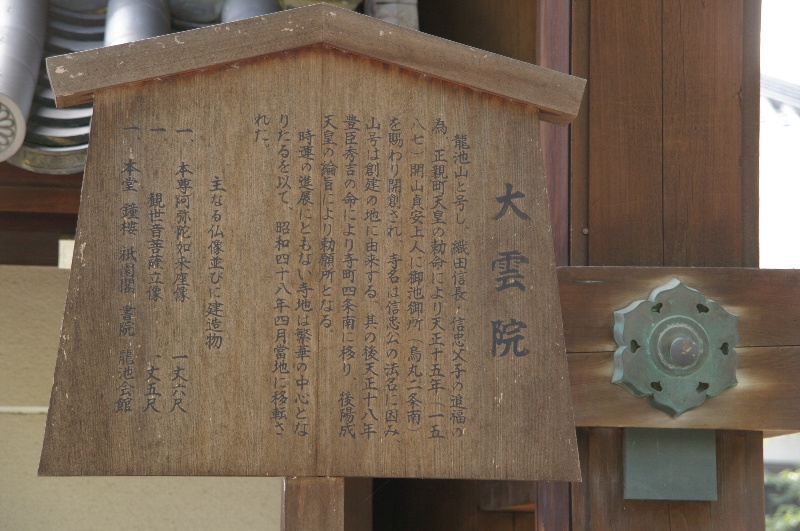 大雲院
龍池山と号し、織田信長、信忠父子の追福の
為、正親町天皇の勅命により天正十五年（一五
八七）開山貞安上人に御池御所（烏丸二条南）
を賜わり開創され、寺名は信忠公の法名に因み
山号は創建の地に由来する。其の後天正十八年
豊臣秀吉の命により寺町四条南に移り、後陽成
天皇の綸旨により勅願所となる。
時運の進展にともない寺地は繁華の中心とな
りたるを以て、昭和四十八年四月當地に移転さ
れた。
主なる仏像並びに建造物
一、本尊阿弥陀如来座像 一丈六尺
一、観世音菩薩立像 一丈五尺
一、本堂 鐘楼 祇園閣 書院 龍池会館